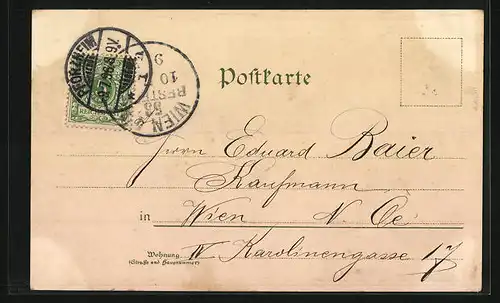 PFORZHEIM
WIEN
BEST
Postkarte
Herrn Eduard Baier
Kaufmann
in Wien N. Oe
Wohnung
(Straße und Hausnummer)
IV Karolinengasse 17